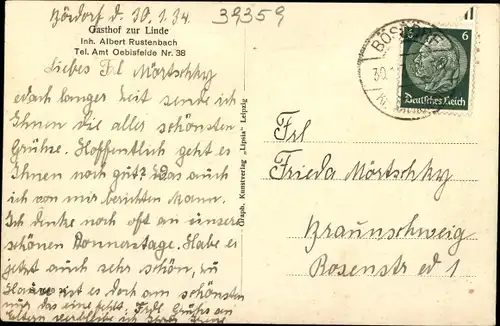 Bösdorf d. 30.1.34.
39359
Gasthof zur Linde
Inh. Albert Rustenbach
Tel. Amt Oebisfelde Nr. 38
Liebes Frl Mörtschky
Nach langer Zeit sende ich
Ihnen die aller schönsten
Grüße. Hoffentlich geht es
Ihnen noch gut? Das auch
ich von mir berichten kann.
Ich denke noch oft an unsere
schönen Donnerstage. Habe es
jetzt auch sehr schön, zu
Hause ist es doch am schönsten
nur das eine fehlt. Frdl. Grüße an
Eltern verbleibe ich Ihre
Graph. Kunstverlag „Lipsia" Leipzig
BÖSDORF
30.1
6
Deutsches Reich
Frl
Frieda Mörtschky
Braunschweig
Rosenstr